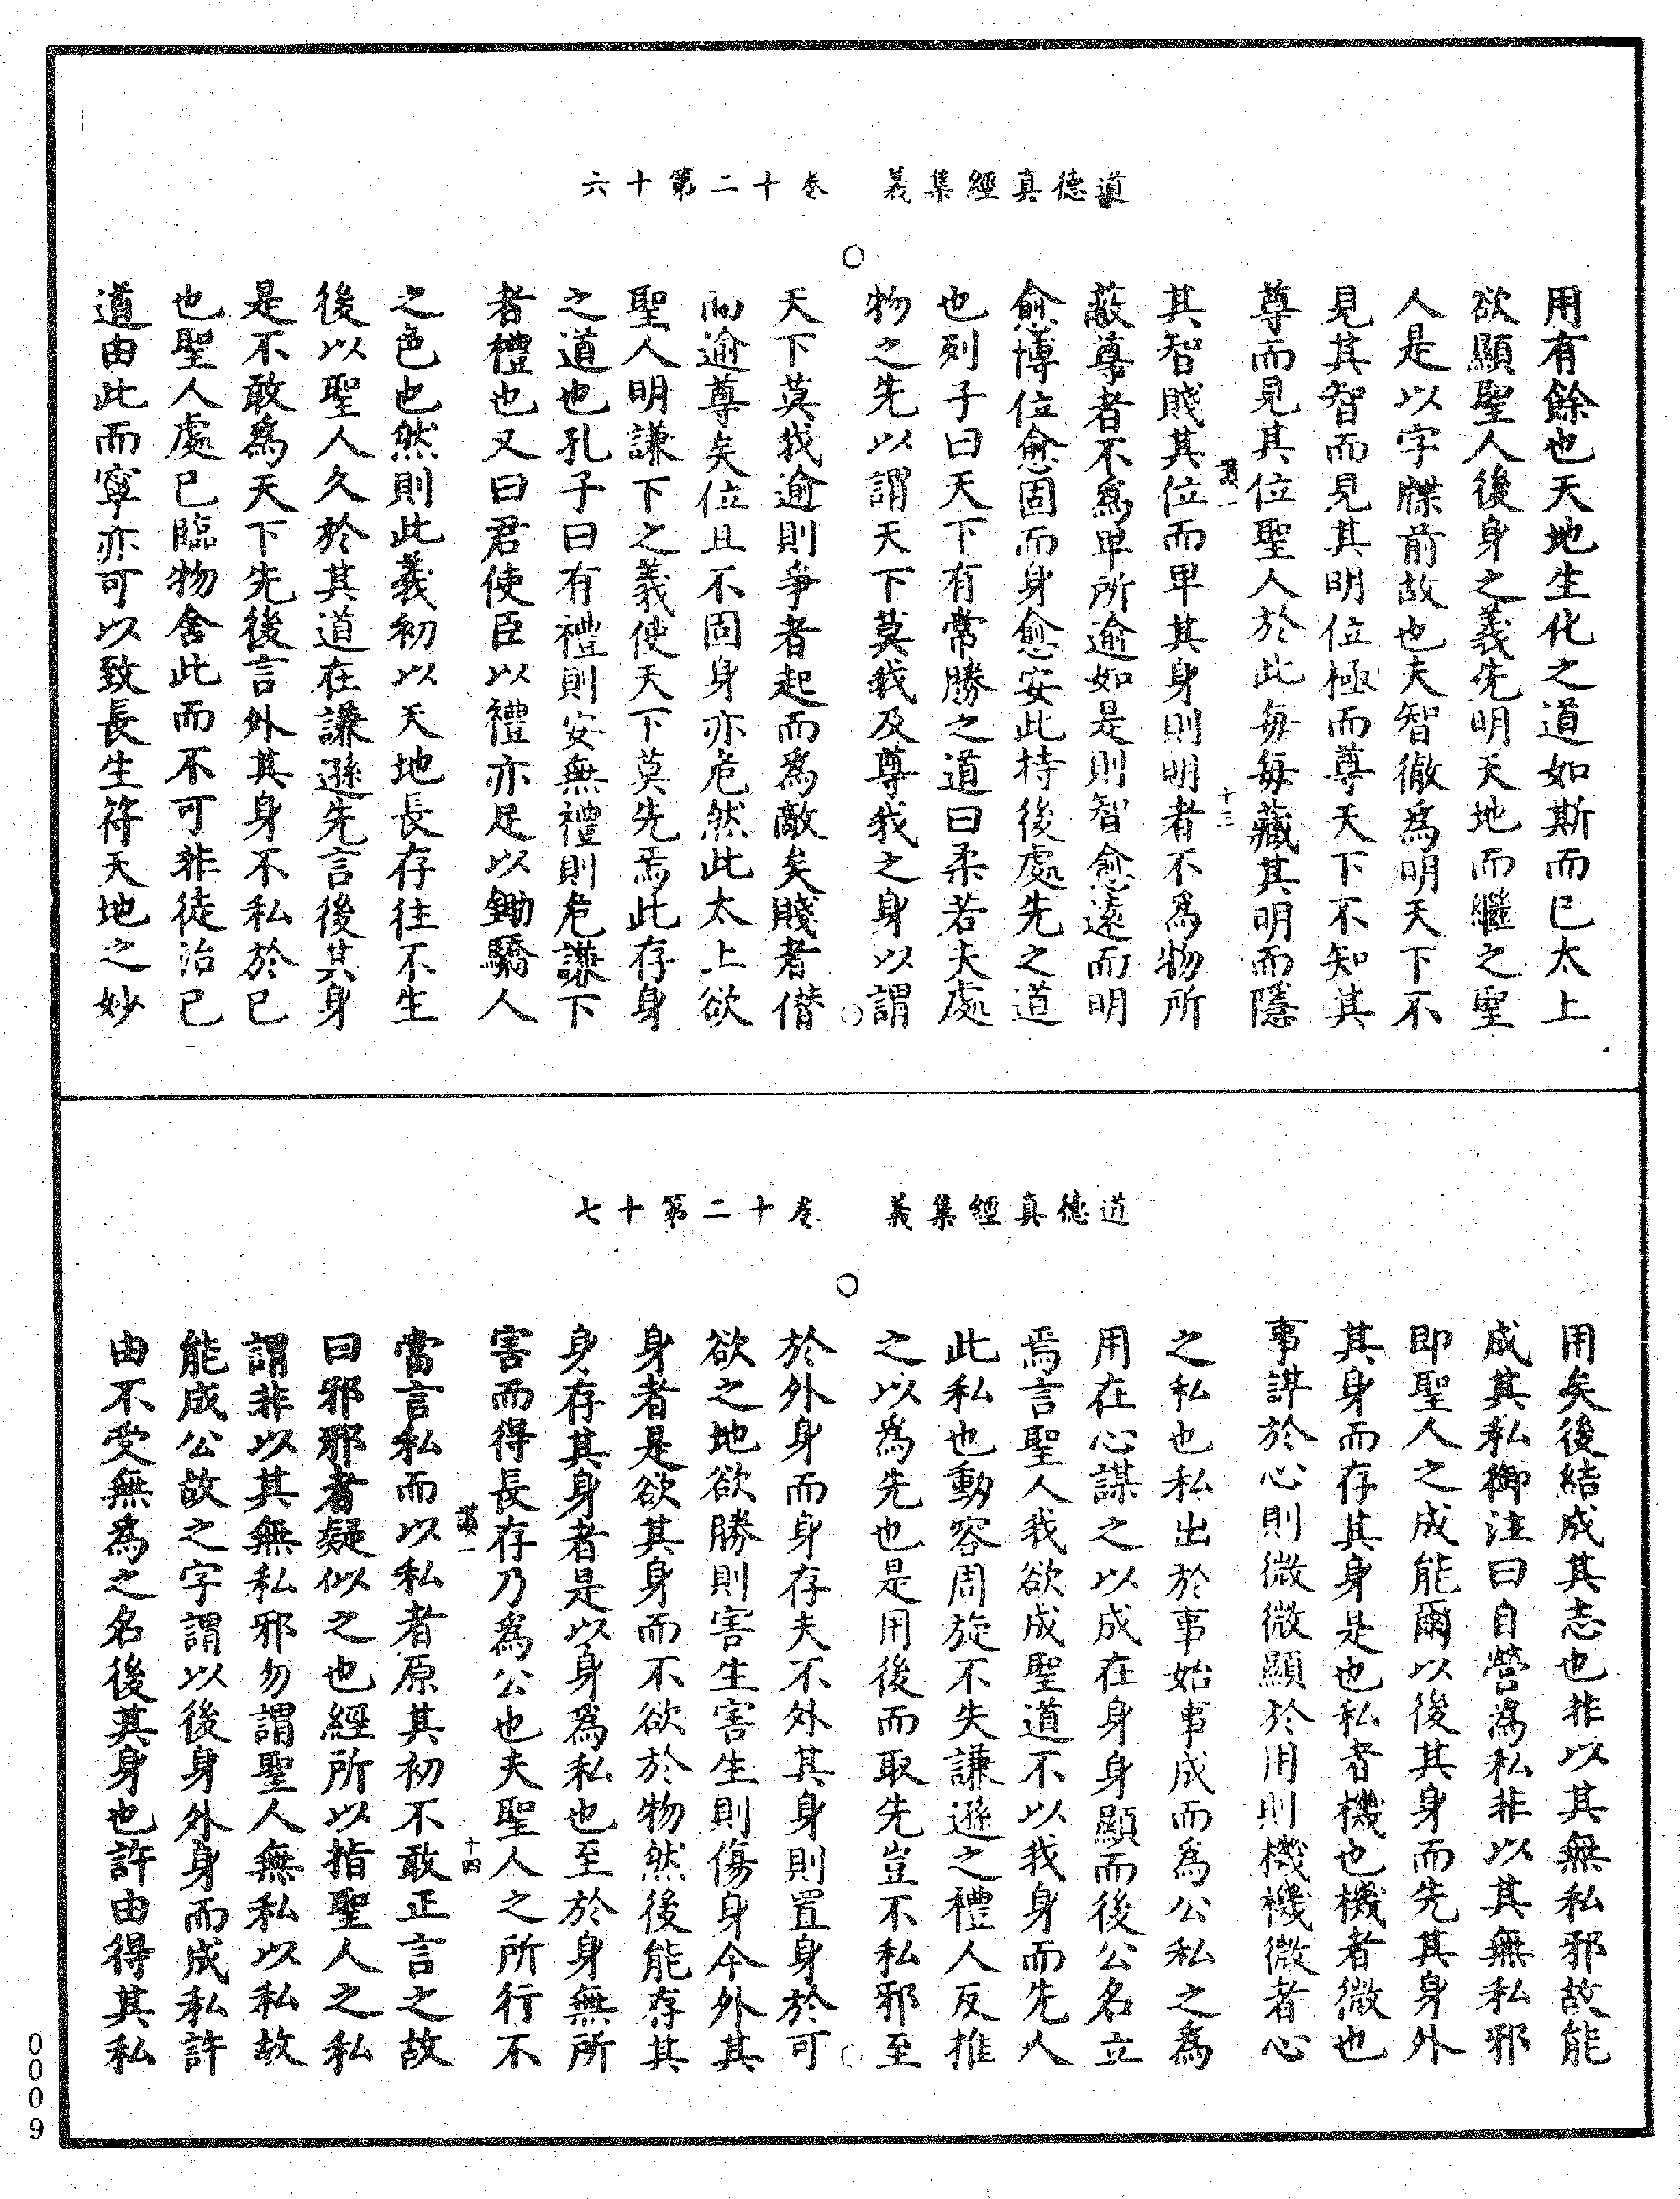 道德真經集義　卷十二第十六
用有餘也天地生化之道如斯而已太上
欲顯聖人後身之義先明天地而繼之聖
人是以字牒前故也夫智徹爲明天下不
見其智而見其明位極而尊天下不知其
尊而見其位聖人於此每每藏其明而隱
義一　十三
其智賤其位而卑其身則明者不爲物所
蔽尊者不爲卑所逾如是則智愈遠而明
愈博位愈固而身愈安此持後處先之道
也列子曰天下有常勝之道曰柔若夫處
物之先以謂天下莫我及尊我之身以謂
天下莫我逾則爭者起而爲敵矣賤者僭
而逾尊矣位且不固身亦危然此太上欲
聖人明謙下之義使天下莫先焉此存身
之道也孔子曰有禮則安無禮則危謙下
者禮也又曰君使臣以禮亦足以鋤驕人
之色也然則此義初以天地長存往不生
後以聖人久於其道在謙遜先言後其身
是不敢爲天下先後言外其身不私於已
也聖人處已臨物舍此而不可非徒治已
道由此而寧亦可以致長生符天地之妙
道德真經集義　卷十二第十七
用矣後結成其志也非以其無私邪故能
成其私御注曰自營為私非以其無私邪
即聖人之成能爾以後其身而先其身外
其身而存其身是也私者機也機者微也
事諆於心則微微顯於用則機機微者心
之私也私出於事始事成而為公私之為
用在心謀之以成在身身顯而後公名立
焉言聖人我欲成聖道不以我身而先人
此私也動容周旋不失謙遜之禮人反推
之以為先也是用後而取先豈不私邪至
於外身而身存夫不外其身則置身於可
欲之地欲勝則害生害生則傷身今外其
身者是欲其身而不欲於物然後能存其
身存其身者是以身爲私也至於身無所
害而得長存乃為公也夫聖人之所行不
義一　十四
當言私而以私者原其初不敢正言之故
曰邪邪者疑似之也經所以指聖人之私
謂非以其無私邪勿謂聖人無私以私故
能成公故之字謂以後身外身而成私許
由不受無為之名後其身也許由得其私
0009